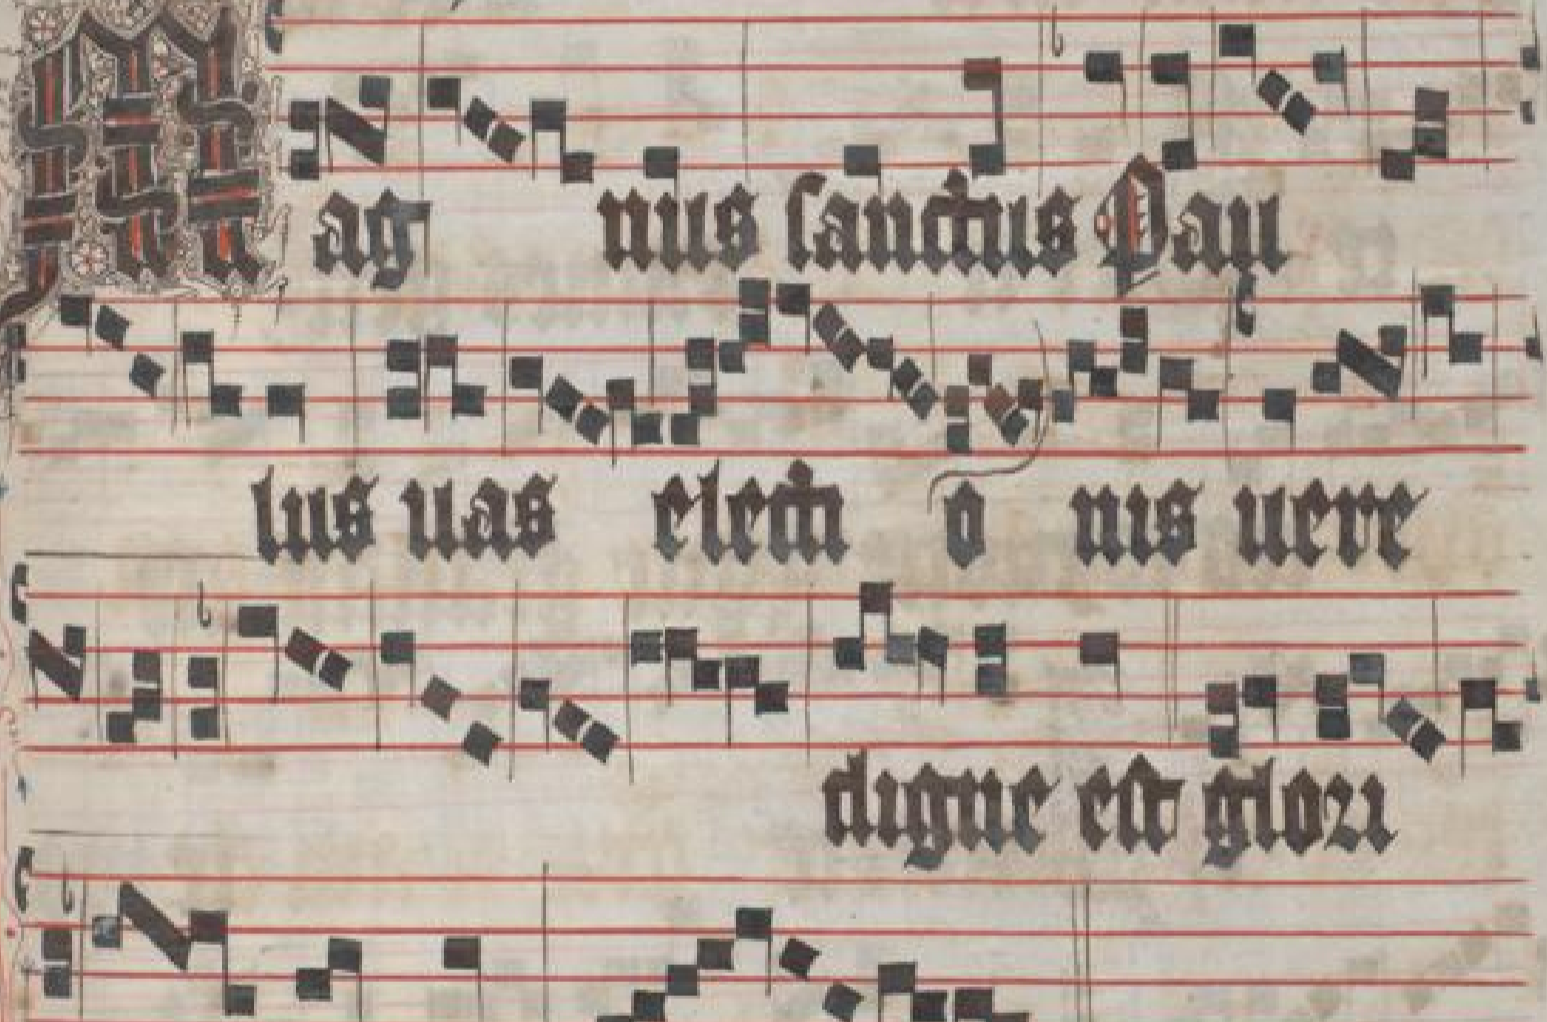 Mag nus sanctus Pau
lus uas electi o nis uere
digne est glori